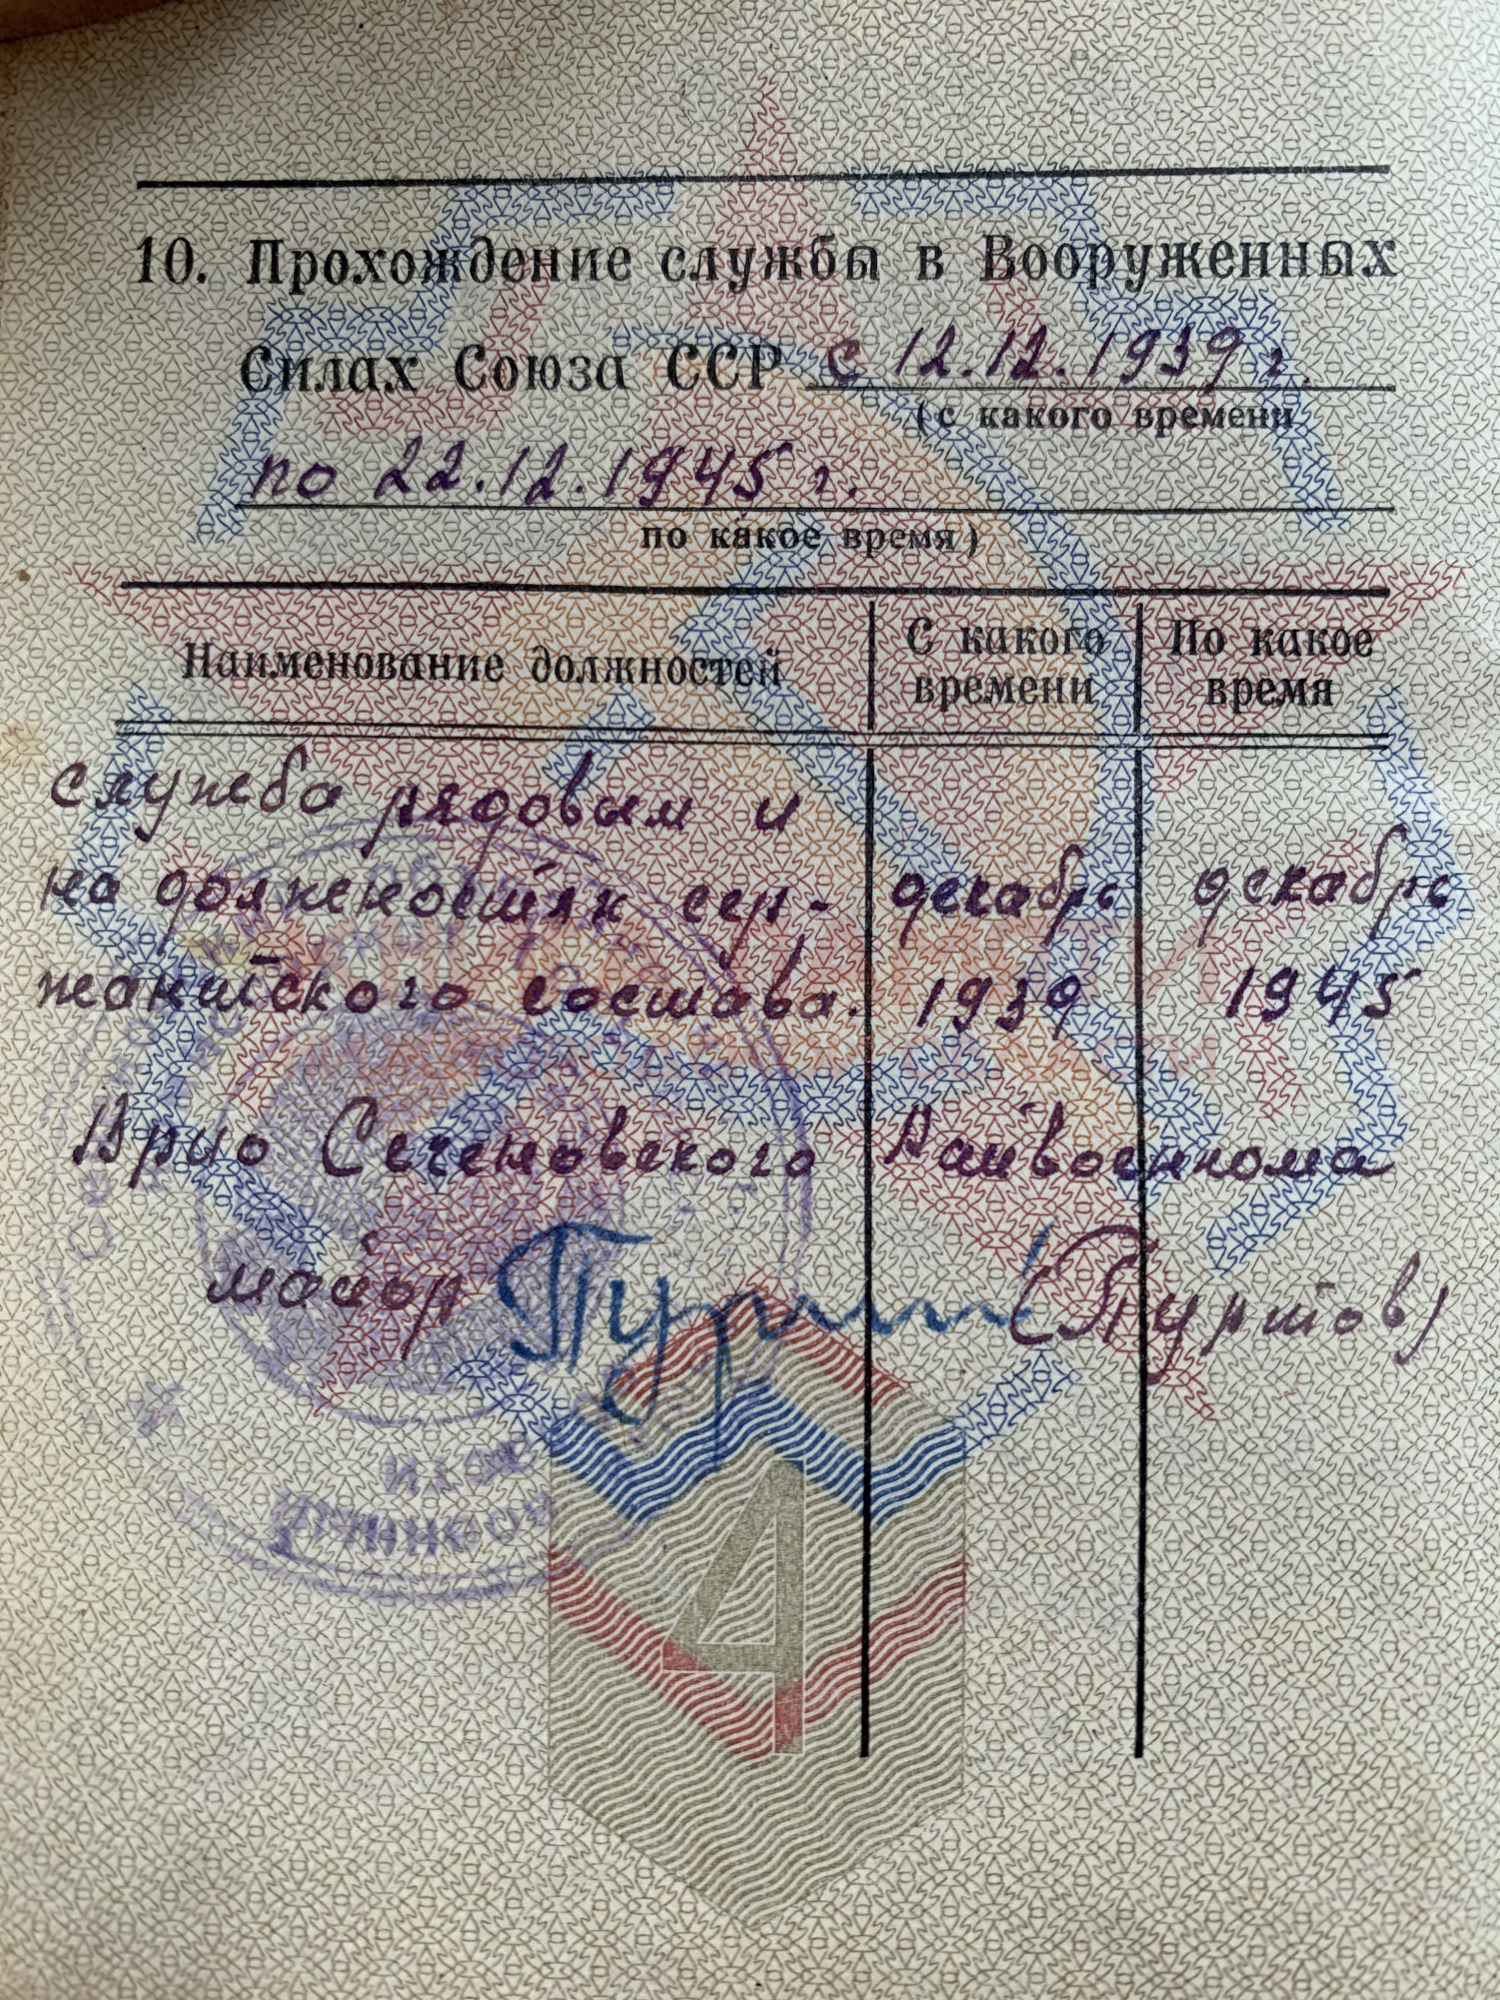 10. Прохождение службы в Вооруженных
Силах Союза ССР с 12.12.1939 г.
(с какого времени
по 22.12.1945 г.
по какое время)
Наименование должностей С какого времени По какое время
служба рядовым и
на должностях сер- декабрь декабрь
жантского состава. 1939 1945
Врио Сеченовского Райвоенкома
майор (Пуртов)
4